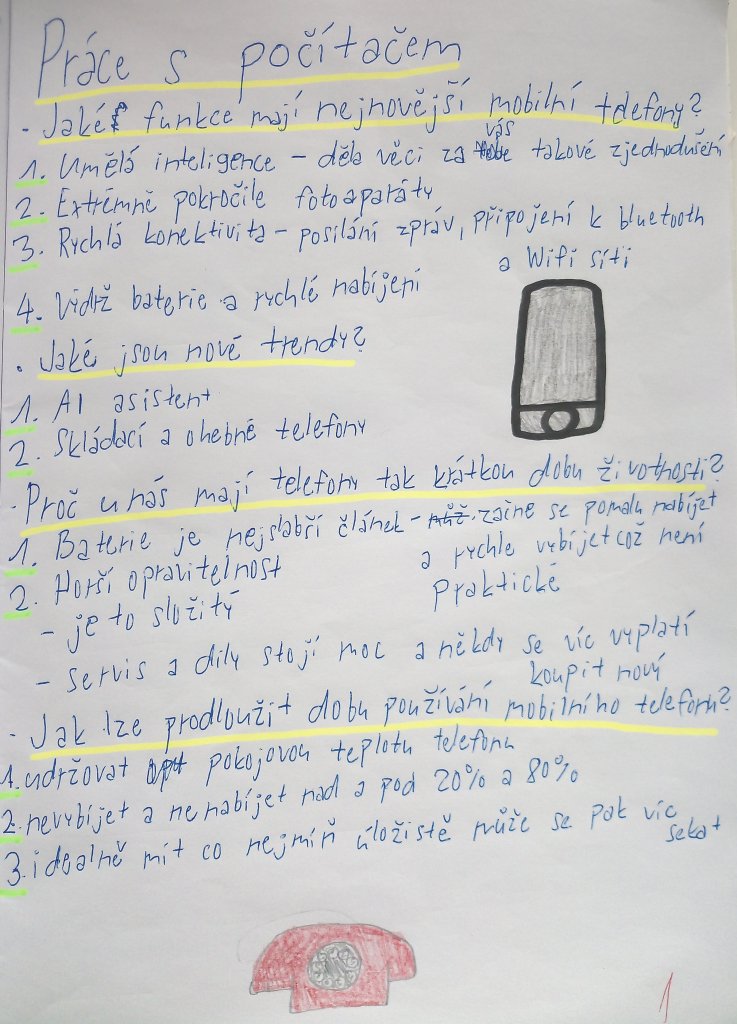 Práce s počítačem
• Jaké funkce mají nejnovější mobilní telefony?
1. Umělá inteligence – děla věci za vás takové zjednodušení
2. Extrémně pokročile fotoaparáty
3. Rychlá konektivita – posílání zpráv, připojení k bluetooth
a Wifi síti
4. Vidrž baterie a rychlé nabíjení
• Jaké jsou nové trendy?
1. AI asistent
2. Skládací a ohebné telefony
• Proč u nás mají telefony tak krátkou dobu životnosti?
1. Baterie je nejslabší článek – začne se pomalu nabíjet
a rychle vybíjet což není
praktické
2. Horší opravitelnost
– je to složitý
– servis a díly stojí moc a někdy se víc vyplatí
koupit nový
• Jak lze prodloužit dobu používání mobilního telefonu?
1. udržovat pokojovou teplotu telefonu
2. nevybíjet a nenabíjet nad a pod 20% a 80%
3. idealně mít co nejmíň úložiště může se pak víc
sekat
1